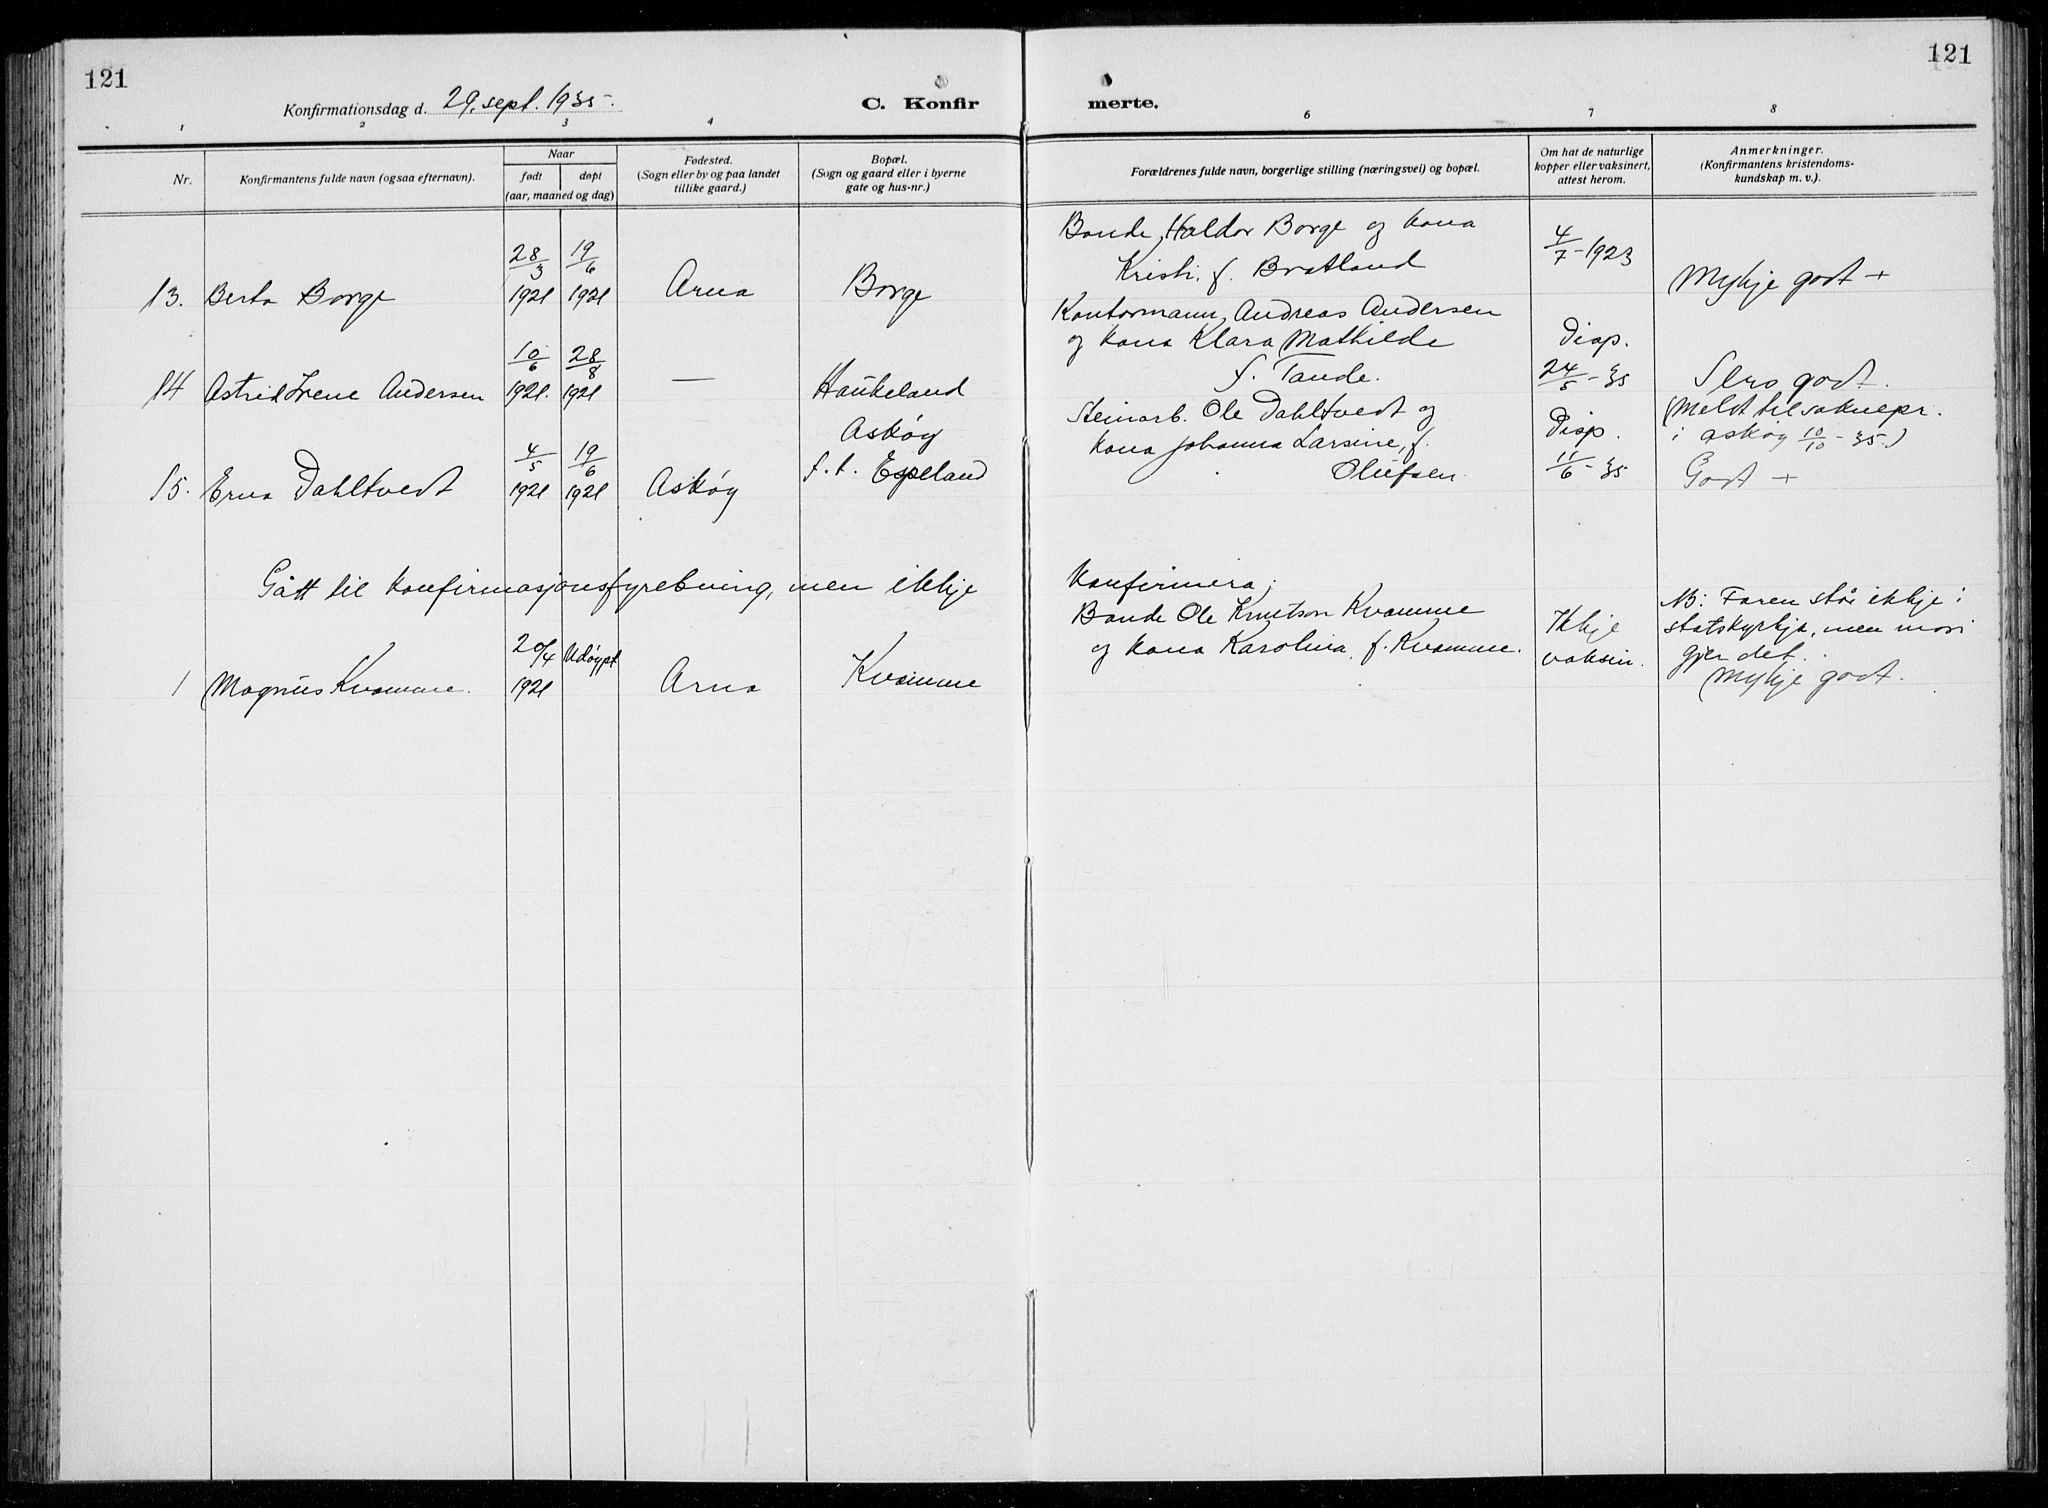 121
121
Konfirmationsdag d. 29. sept. 1935.
C. Konfir
merte.
1 2 3 4 6 7 8
Nr.
Konfirmantens fulde navn (ogsaa efternavn).
Naar
født
døpt
(aar, maaned og dag)
Fødested.
(Sogn eller by og paa landet
tillike gaard.)
Bopæl.
(Sogn og gaard eller i byerne
gate og hus-nr.)
Forældrenes fulde navn, borgerlige stilling (næringsvei) og bopæl.
Om hat de naturlige
kopper eller vaksinert,
attest herom.
Anmerkninger.
(Konfirmantens kristendoms-
kundskap m. v.).
13. Berta Borge
28/3 1921
19/6 1921
Arna
Borge
Bonde Haldor Borge og kona
Kristi f. Bratland
4/7 - 1923
Mykje godt +
14 Astrid Irene Andersen
10/6 1921.
28/8 1921
—
Haukeland
Kontormann Andreas Andersen
og kona Klara Mathilde
f. Tande.
Disp.
24/5 - 35
godt.
15. Erna Dahltvedt
4/5 1921
19/6 1921
Askøy
Askøy
f. t. Espeland
Steinarb. Ole Dahltvedt og
kona Johanna Larsine, f.
Olufsen.
Disp.
11/6 - 35
(Meldt til soknepr.
i Askøy 10/10 - 35.)
Godt +
Gått til konfirmasjonsfyrebuing, men ikkje
konfirmera;
1 Magnus Kvamme.
20/4 1921
Udøypt
Arna
Kvamme
Bonde Ole Knutson Kvamme
og kona Karolina, f. Kvamme.
Ikkje
vaksin.
NB: Faren står ikkje i
statskyrkja, men mori
gjer det.
Mykje godt.